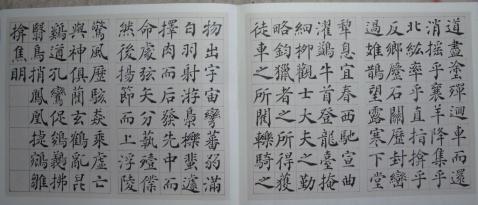 道盡塗殫迴車而還
消摇乎襄羊降集乎
北紘率乎直指揜乎
反鄉蹷石關歷封巒
過鳷鵲望露寒下堂
犂息宜春西馳宣曲
濯鷁牛首登龍臺掩
細柳觀士大夫之勤
略鈞獵者之所得獲
徒車之所閵轢騎之
物出宇宙彎蕃弱滿
白羽射游梟櫟蜚遽
擇肉而后發先中而
命處弦矢分蓺殪僕
然後揚節而上浮陵
驚風歷駭猋乘虛亡
與神俱藺玄鶴亂昆
鷄道孔鸞促鵔鸃拂
翳鳥捎鳳凰捷鵷雛
揜焦明